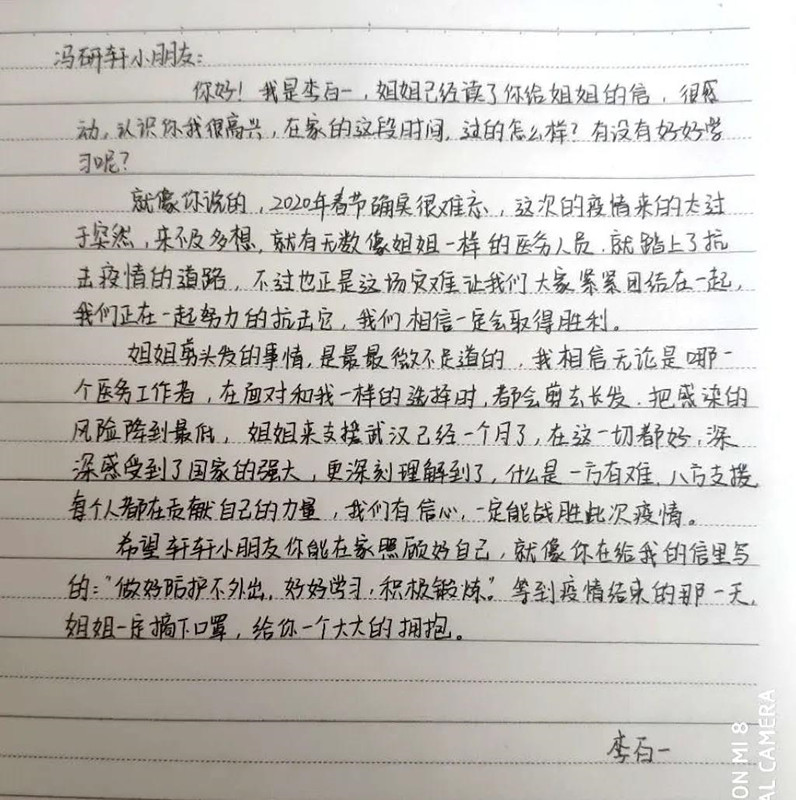 冯研轩小朋友:
你好！我是李百一，姐姐已经读了你给姐姐的信，很感
动，认识你我很高兴，在家的这段时间，过的怎么样？有没有好好学
习呢？
就像你说的，2020年春节确实很难忘，这次的疫情来的太过
于突然，来不及多想，就有无数像姐姐一样的医务人员，就踏上了抗
击疫情的道路，不过也正是这场灾难让我们大家紧紧团结在一起，
我们正在一起努力的抗击它，我们相信一定会取得胜利。
姐姐剪头发的事情，是最最微不足道的，我相信无论是哪一
个医务工作者，在面对和我一样的选择时，都会剪去长发，把感染的
风险降到最低，姐姐来支援武汉已经一个月了，在这一切都好，深
深感受到了国家的强大，更深刻理解到了，什么是一方有难，八方支援，
每个人都在贡献自己的力量，我们有信心，一定能战胜此次疫情。
希望轩轩小朋友你能在家照顾好自己，就像你在给我的信里写
的："做好防护不外出，好好学习，积极锻炼"。等到疫情结束的那一天，
姐姐一定摘下口罩，给你一个大大的拥抱。
李百一
ON MI 8
AL CAMERA